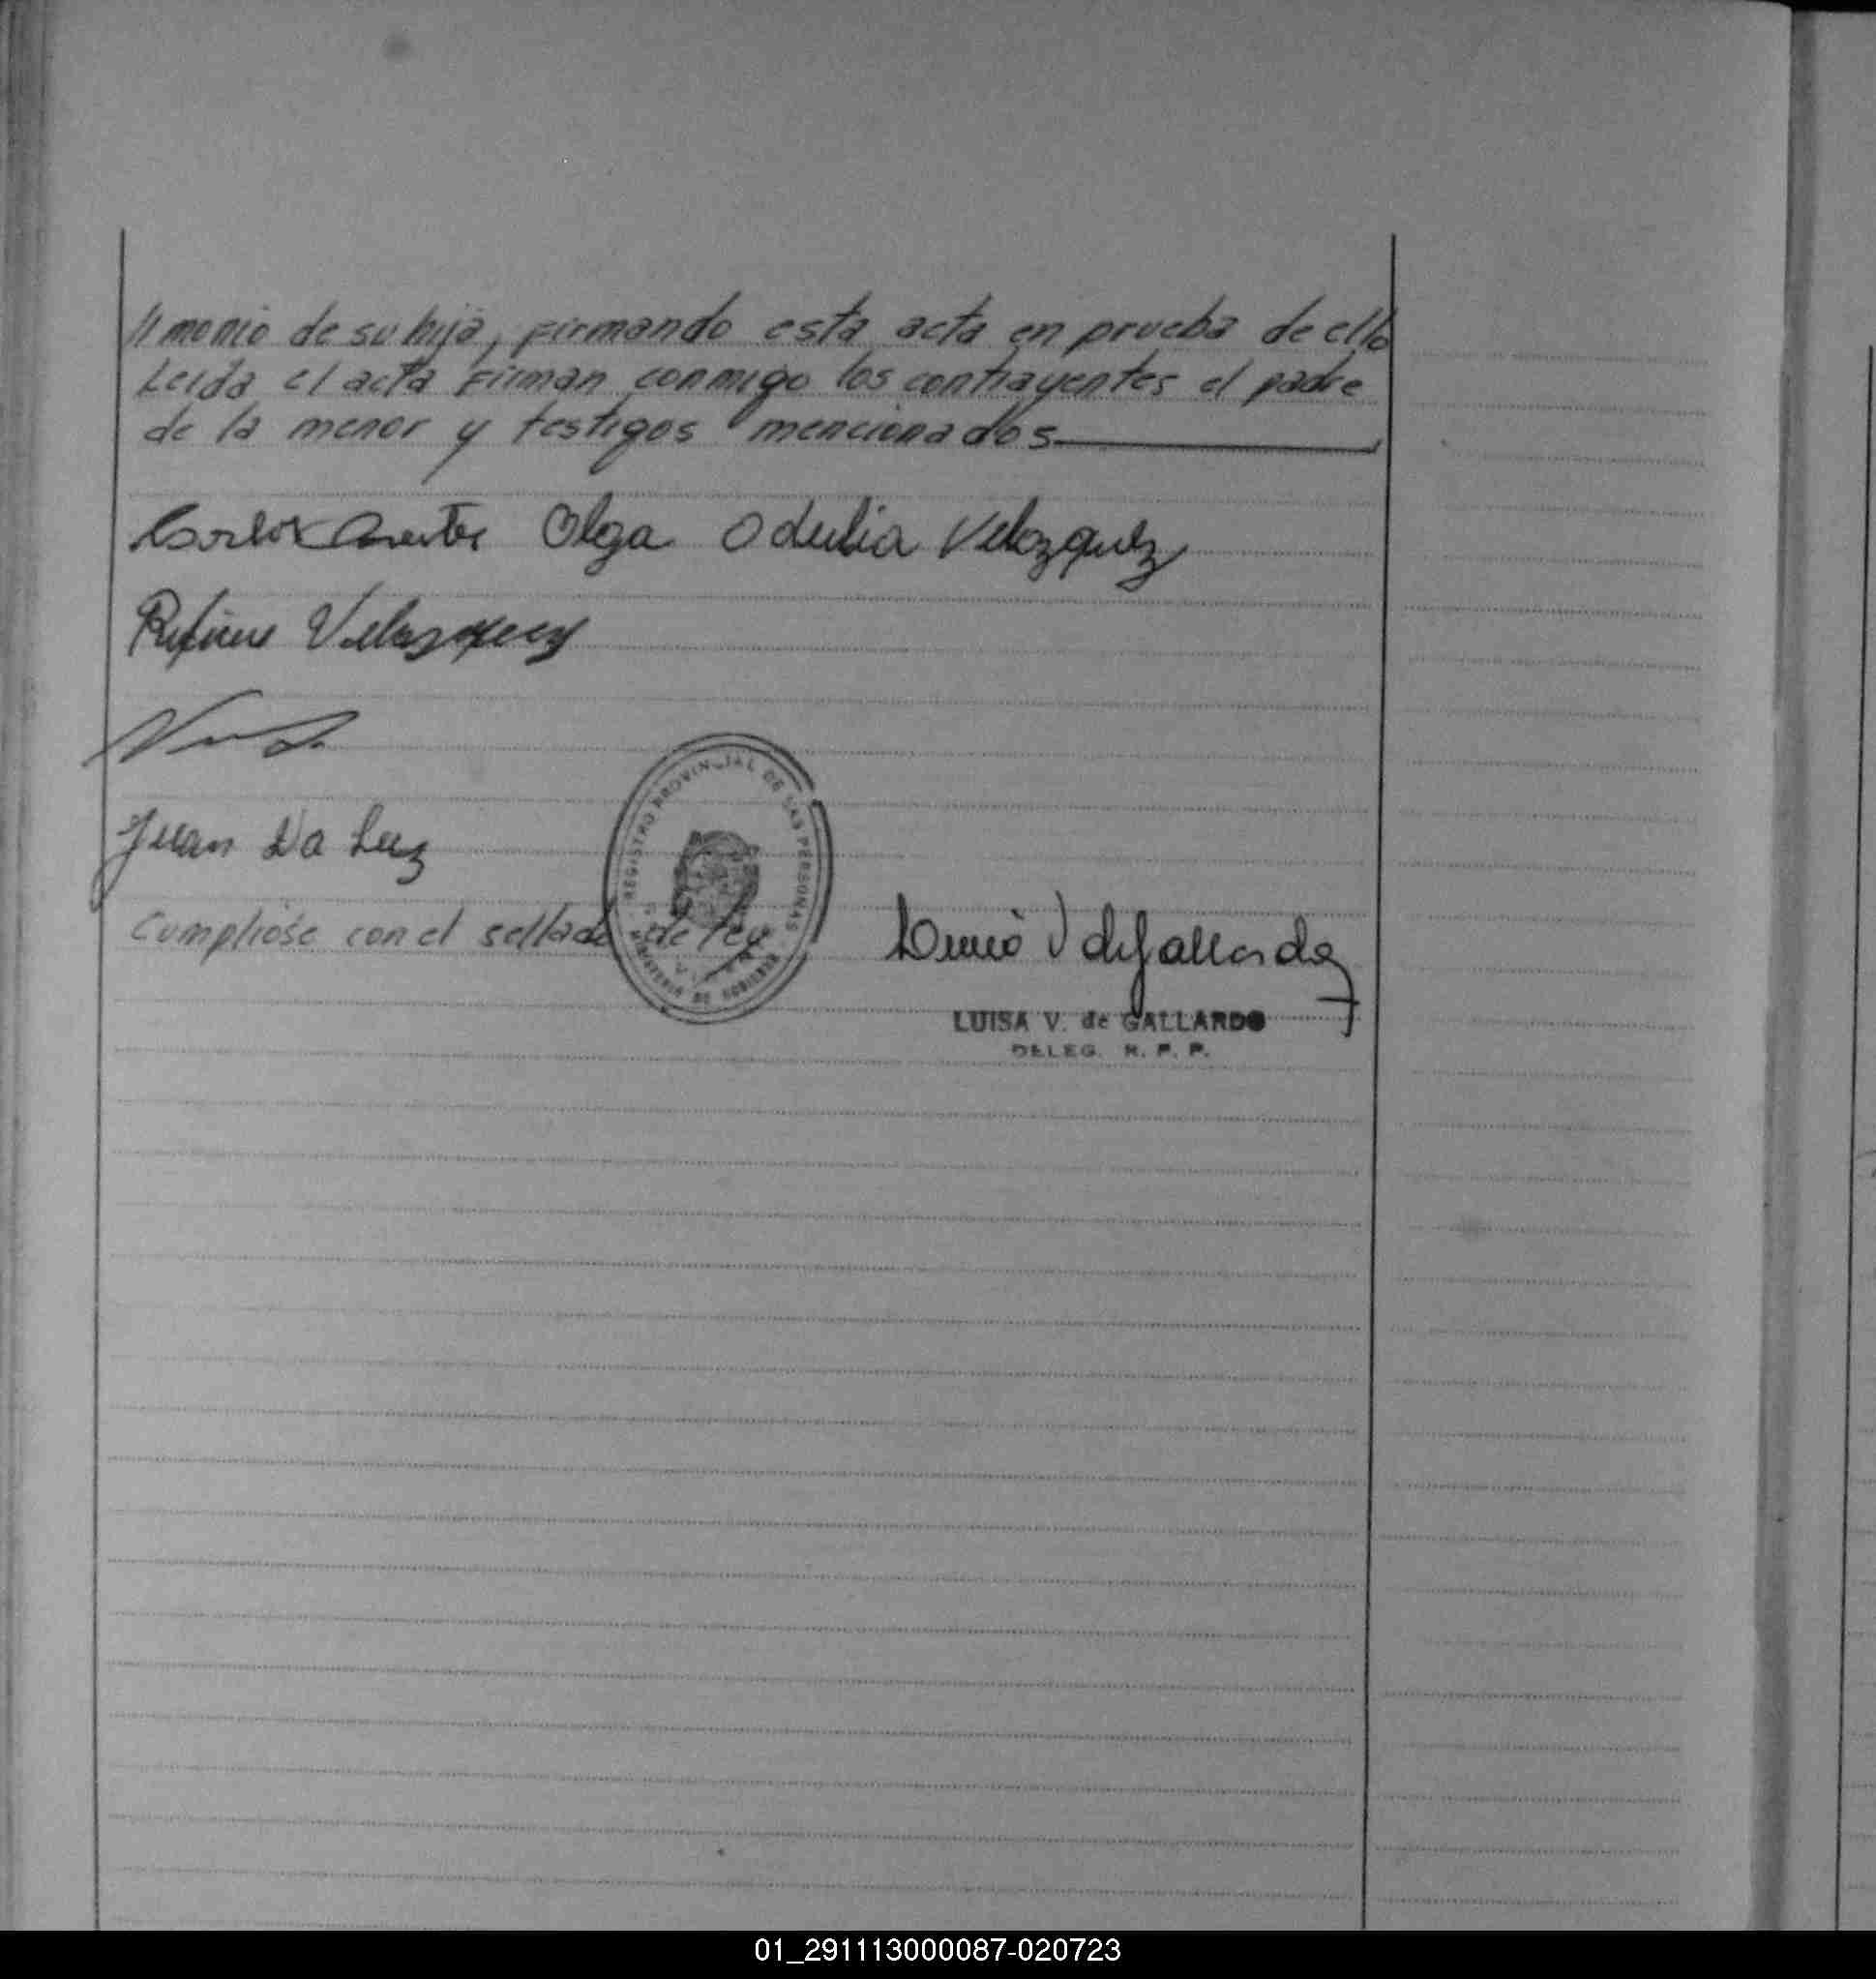 // monio de su hija, Firmando esta acta en prueba de ello
Leida el acta Firman conmigo los contrayentes el padre
de la menor y testigos mencionados
Carlos
Olga Odulia Velazquez
Velazquez
Juan Da Luz
Cumpliose con el sellado de ley
REGISTRO PROVINCIAL DE LAS PERSONAS
MINISTERIO DE GOBIERNO
V de Gallardo
LUISA V. de GALLARDO
DELEG. R. P. P.
01_291113000087-020723